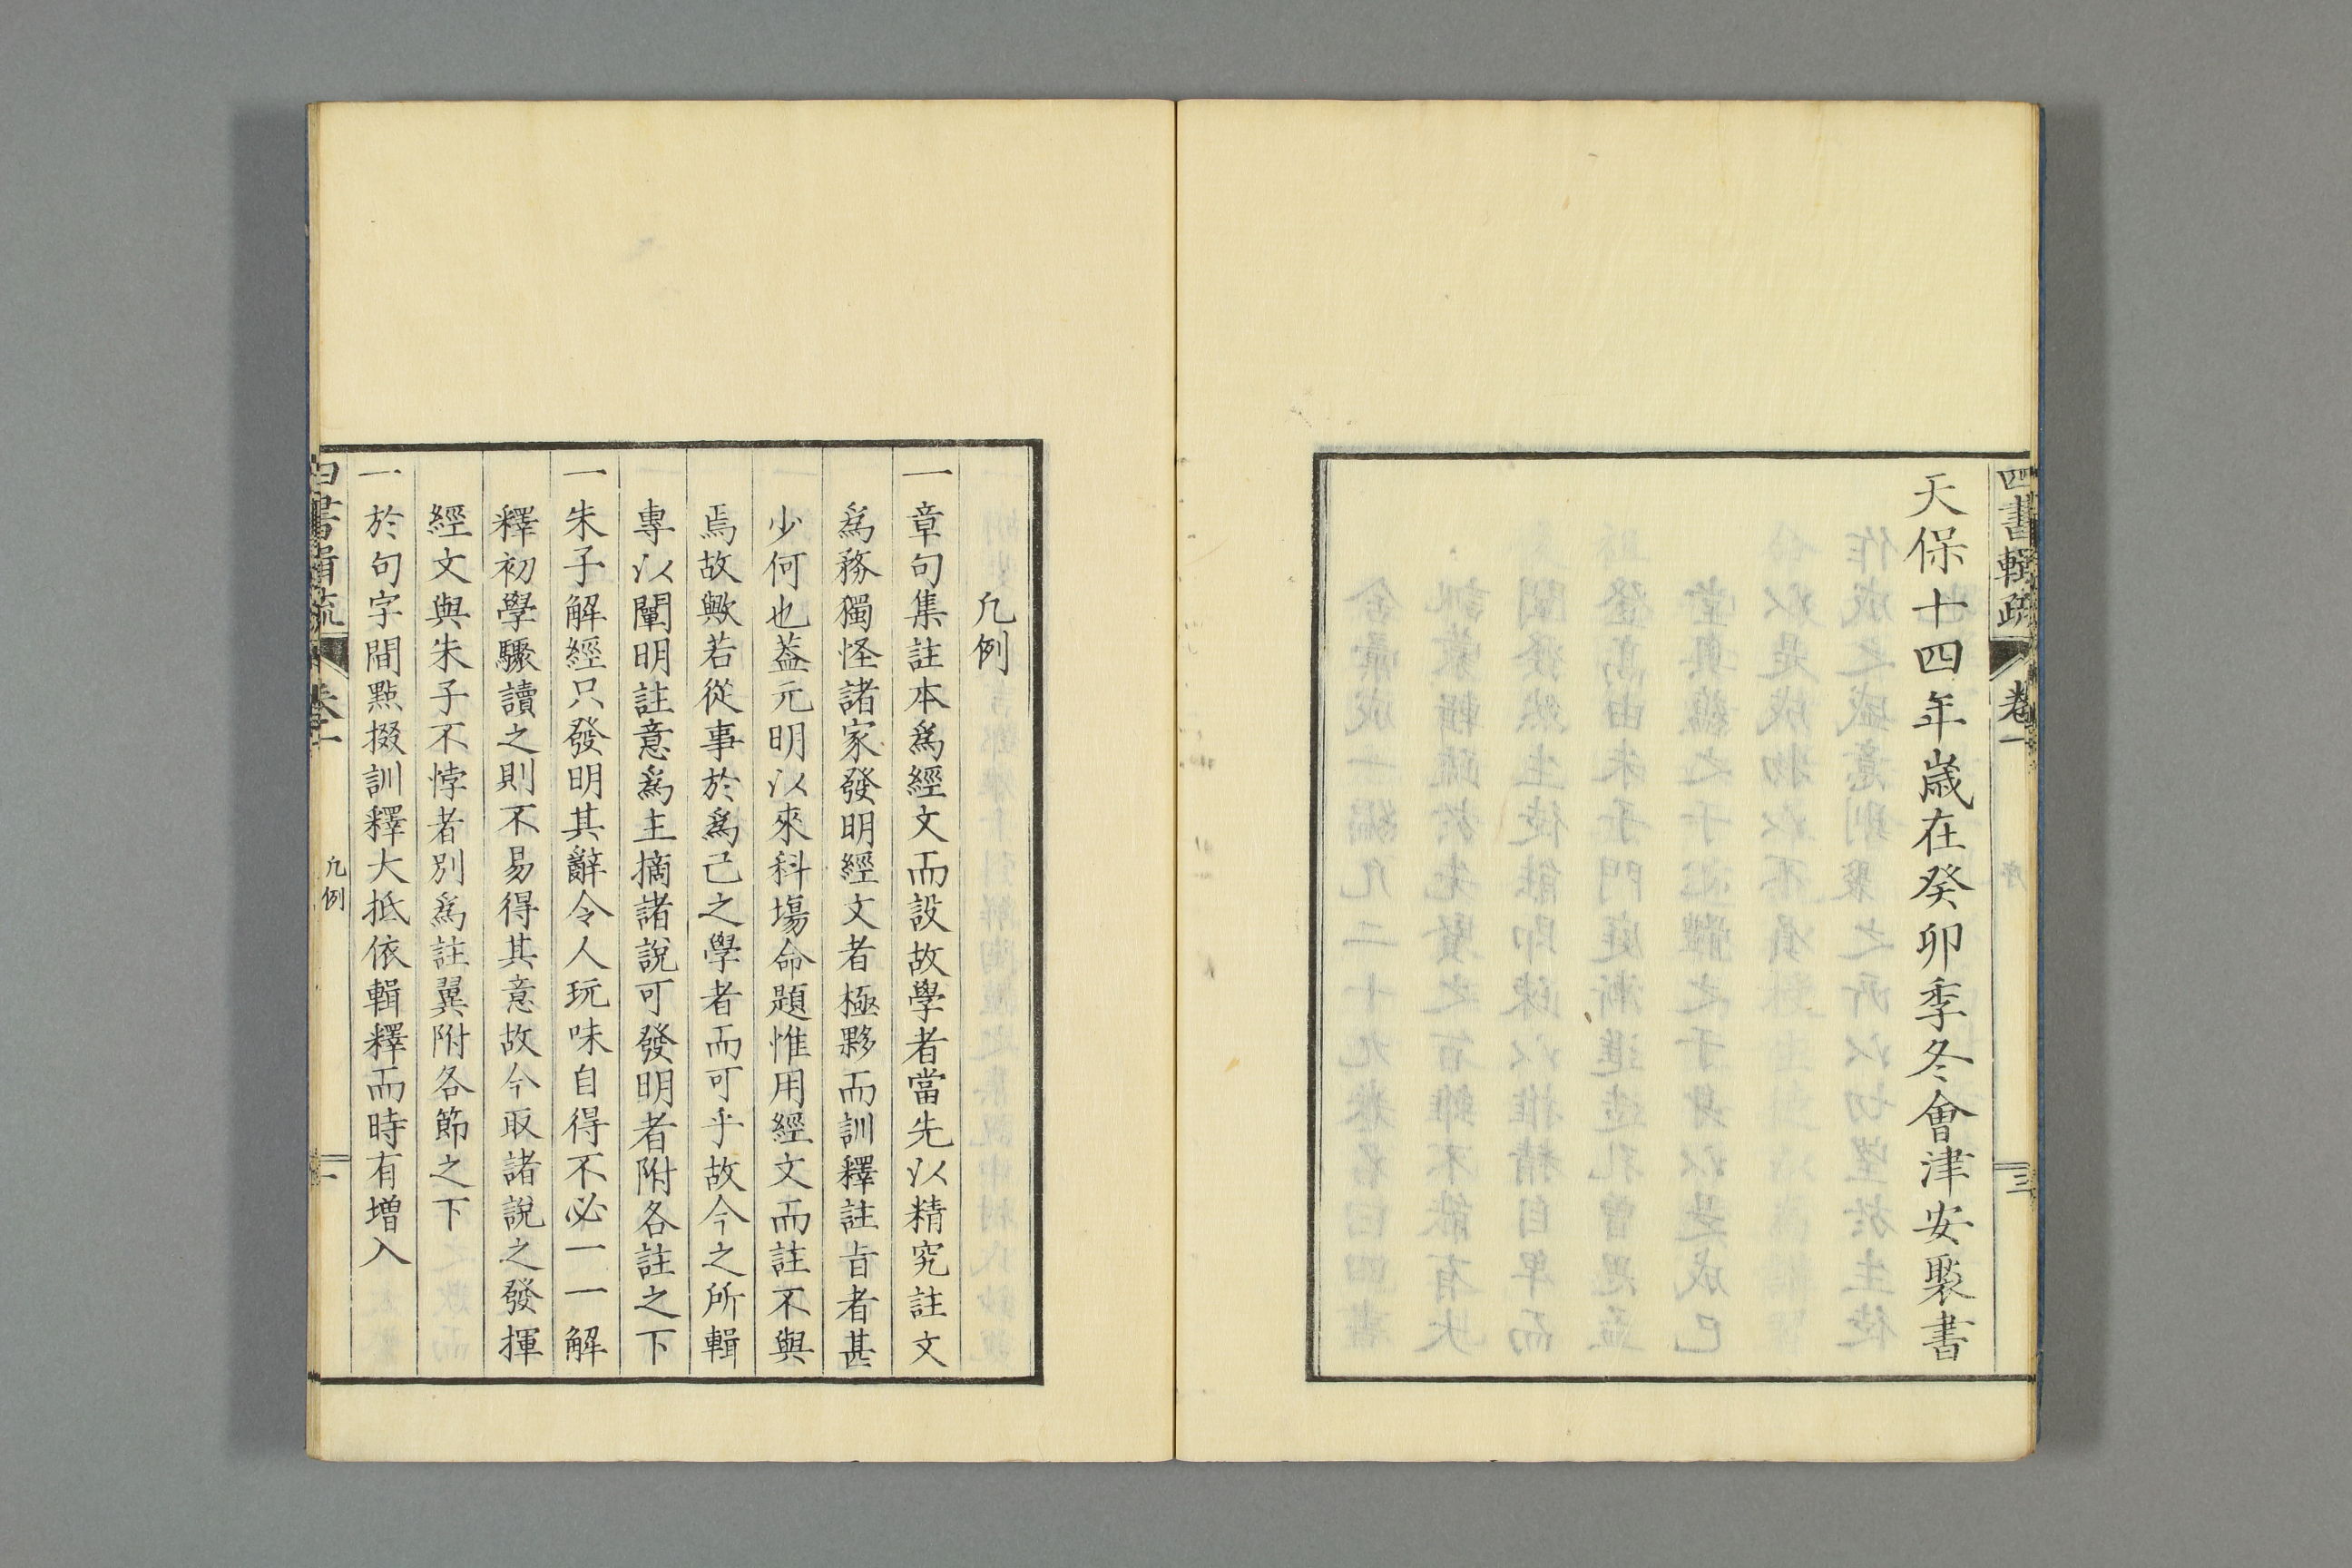 四書輯疏 卷一 序 三
天保十四年歲在癸卯季冬會津安褧書
凡例
一章句集註本爲經文而設故學者當先以精究註文
爲務獨怪諸家發明經文者極夥而訓釋註旨者甚
少何也蓋元明以來科場命題惟用經文而註不與
焉故歟若從事於爲己之學者而可乎故今之所輯
專以闡明註意爲主摘諸說可發明者附各註之下
一朱子解經只發明其辭令人玩味自得不必一一解
釋初學驟讀之則不易得其意故今取諸說之發揮
經文與朱子不悖者別爲註翼附各節之下
一於句字間點掇訓釋大抵依輯釋而時有増入
四書輯疏 卷一 凡例 一